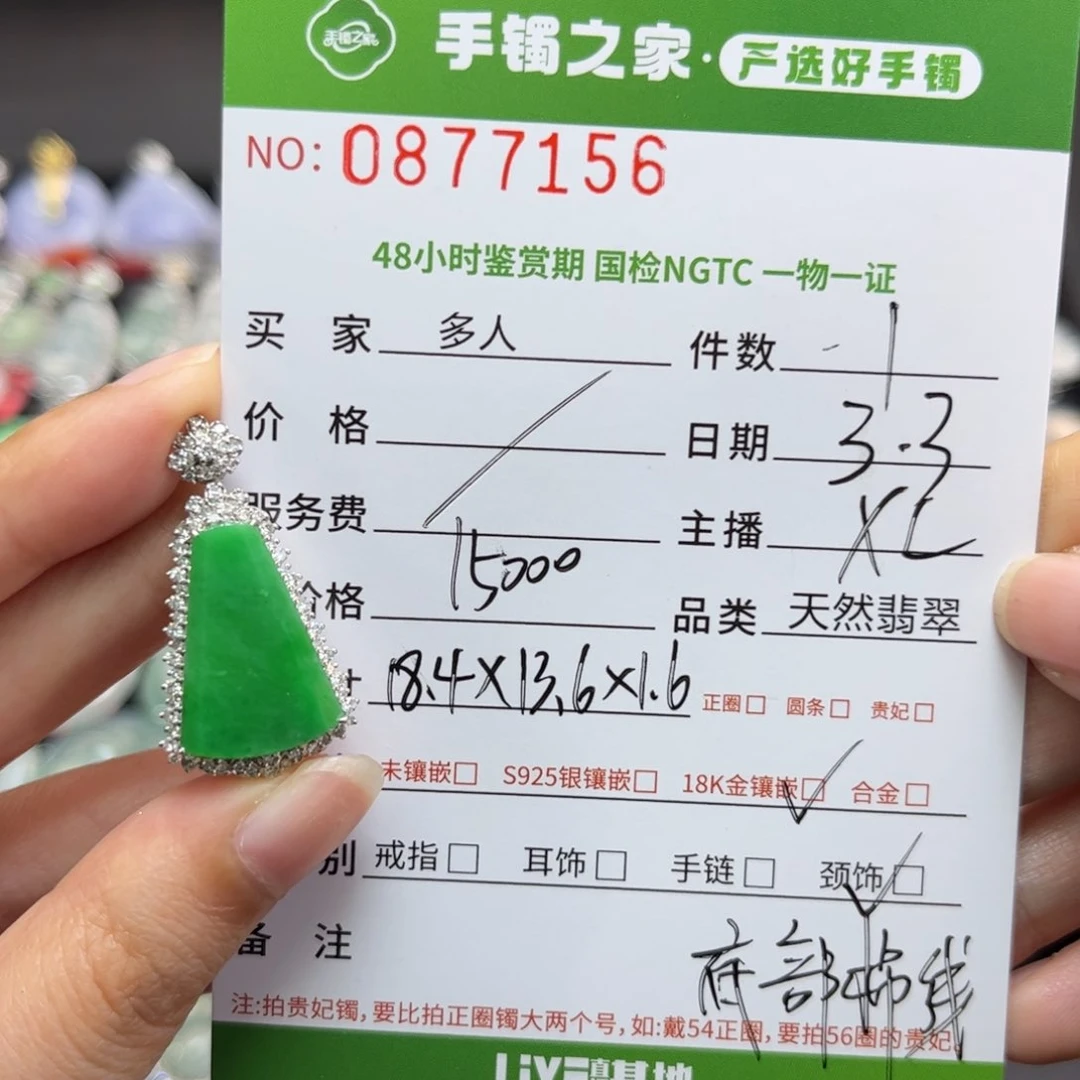 手镯之家
手镯之家·严选好手镯
NO: 0877156
48小时鉴赏期 国检NGTC 一物一证
买 家 多人 件数 1
价 格 日期 3.3
服务费 主播 XL
价格 15000 品类 天然翡翠
寸 18.4×13.6×1.6 正圈□ 圆条□ 贵妃□
未镶嵌□ S925银镶嵌□ 18K金镶嵌☑ 合金□
别 戒指□ 耳饰□ 手链□ 颈饰☑
备 注
注:拍贵妃镯,要比拍正圈镯大两个号,如:戴54正圈,要拍56圈的贵妃。